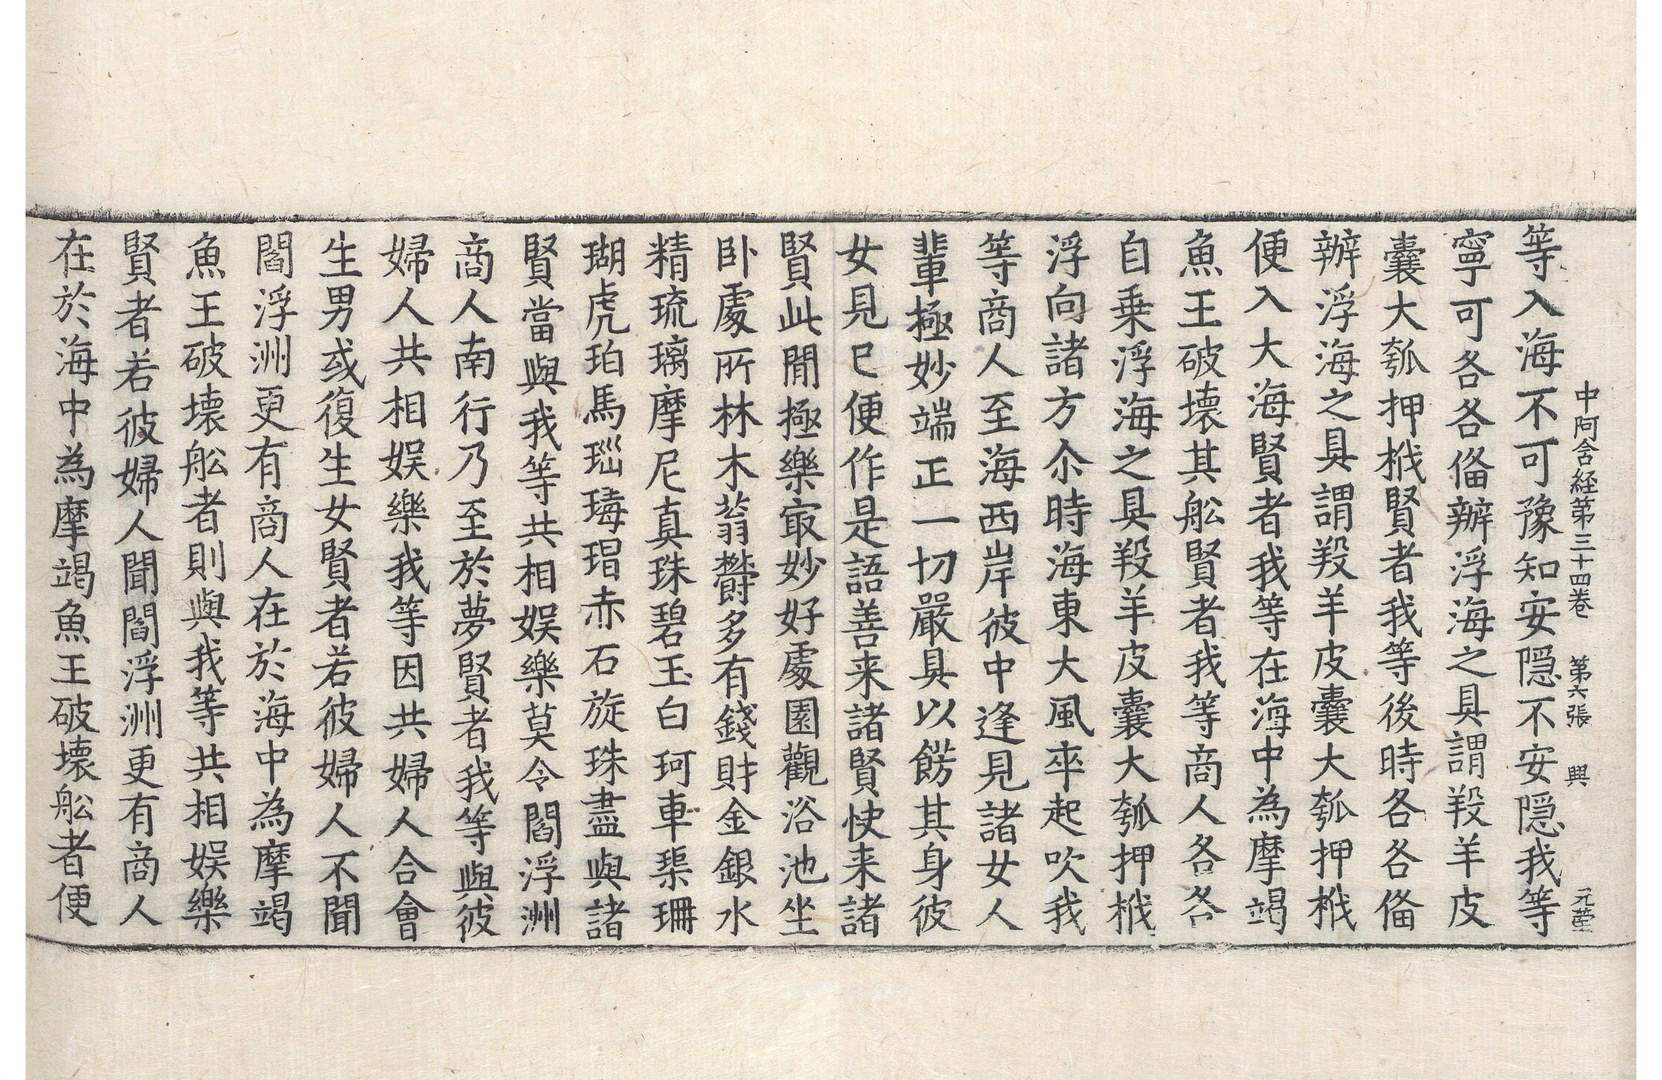 中阿含経第三十四卷 第六張 興 元瑩
等入海不可豫知安隱不安隱我等
寧可各各俻辦浮海之具謂羖羊皮
囊大瓠押栰賢者我等後時各各俻
辦浮海之具謂羖羊皮囊大瓠押栰
便入大海賢者我等在海中為摩竭
魚王破壞其舩賢者我等商人各各
自乗浮海之具羖羊皮囊大瓠押栰
浮向諸方尒時海東大風卒起吹我
等商人至海西岸彼中逢見諸女人
輩極妙端正一切嚴具以餝其身彼
女見已便作是語善来諸賢快来諸
賢此閒極樂㝡妙好處園觀浴池坐
卧處所林木蓊欝多有錢財金銀水
精琉璃摩尼真珠碧玉白珂車渠珊
瑚虎珀馬瑙瑇瑁赤石旋珠盡與諸
賢當與我等共相娱樂莫令閻浮洲
商人南行乃至於夢賢者我等與彼
婦人共相娱樂我等因共婦人合會
生男或復生女賢者若彼婦人不聞
閻浮洲更有商人在於海中為摩竭
魚王破壞舩者則與我等共相娱樂
賢者若彼婦人聞閻浮洲更有商人
在於海中為摩竭魚王破壞舩者便